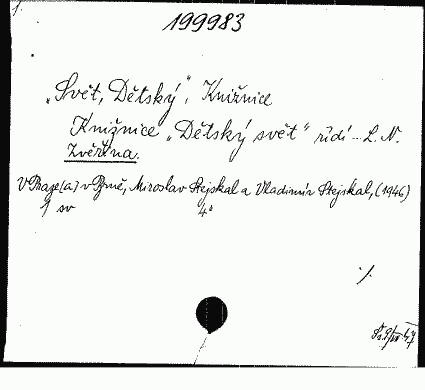 1.
199983
„Svět, Dětský", Knižnice
Knižnice „Dětský svět" řídí ... L. N.
Zvěřina.
V Praze [a] v Brně, Miroslav Stejskal a Vladimír Stejskal, (1946)
1 sv 4°
·/.